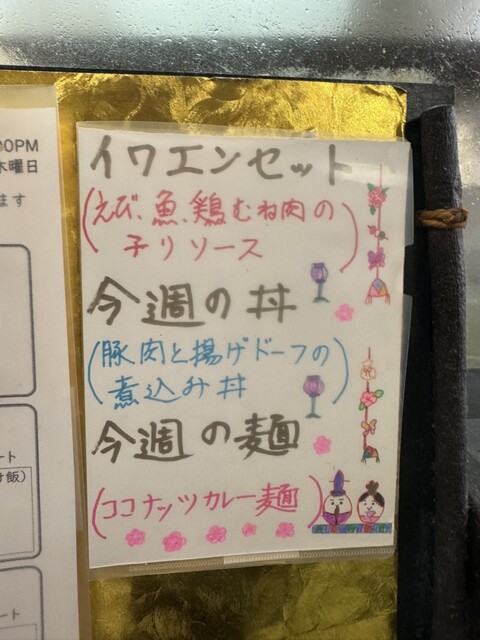 イワエンセット
(えび、魚、鶏むね肉の
チリソース
今週の丼
(豚肉と揚げドーフの
煮込み丼)
今週の麺
(ココナッツカレー麺)
0PM
木曜日
ます
ート
け飯)
ート